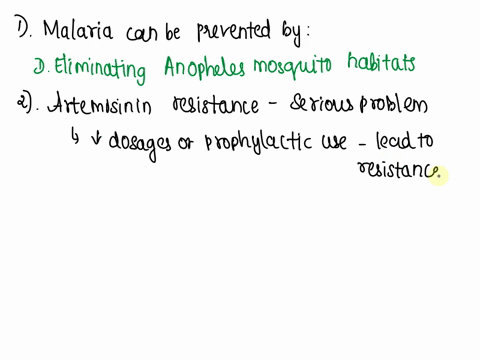 1). Malaria can be prevented by:
D. Eliminating Anopheles mosquito habitats
2). Artemisinin resistance - serious problem
↳ ↓ dosages or prophylactic use - lead to
resistance.